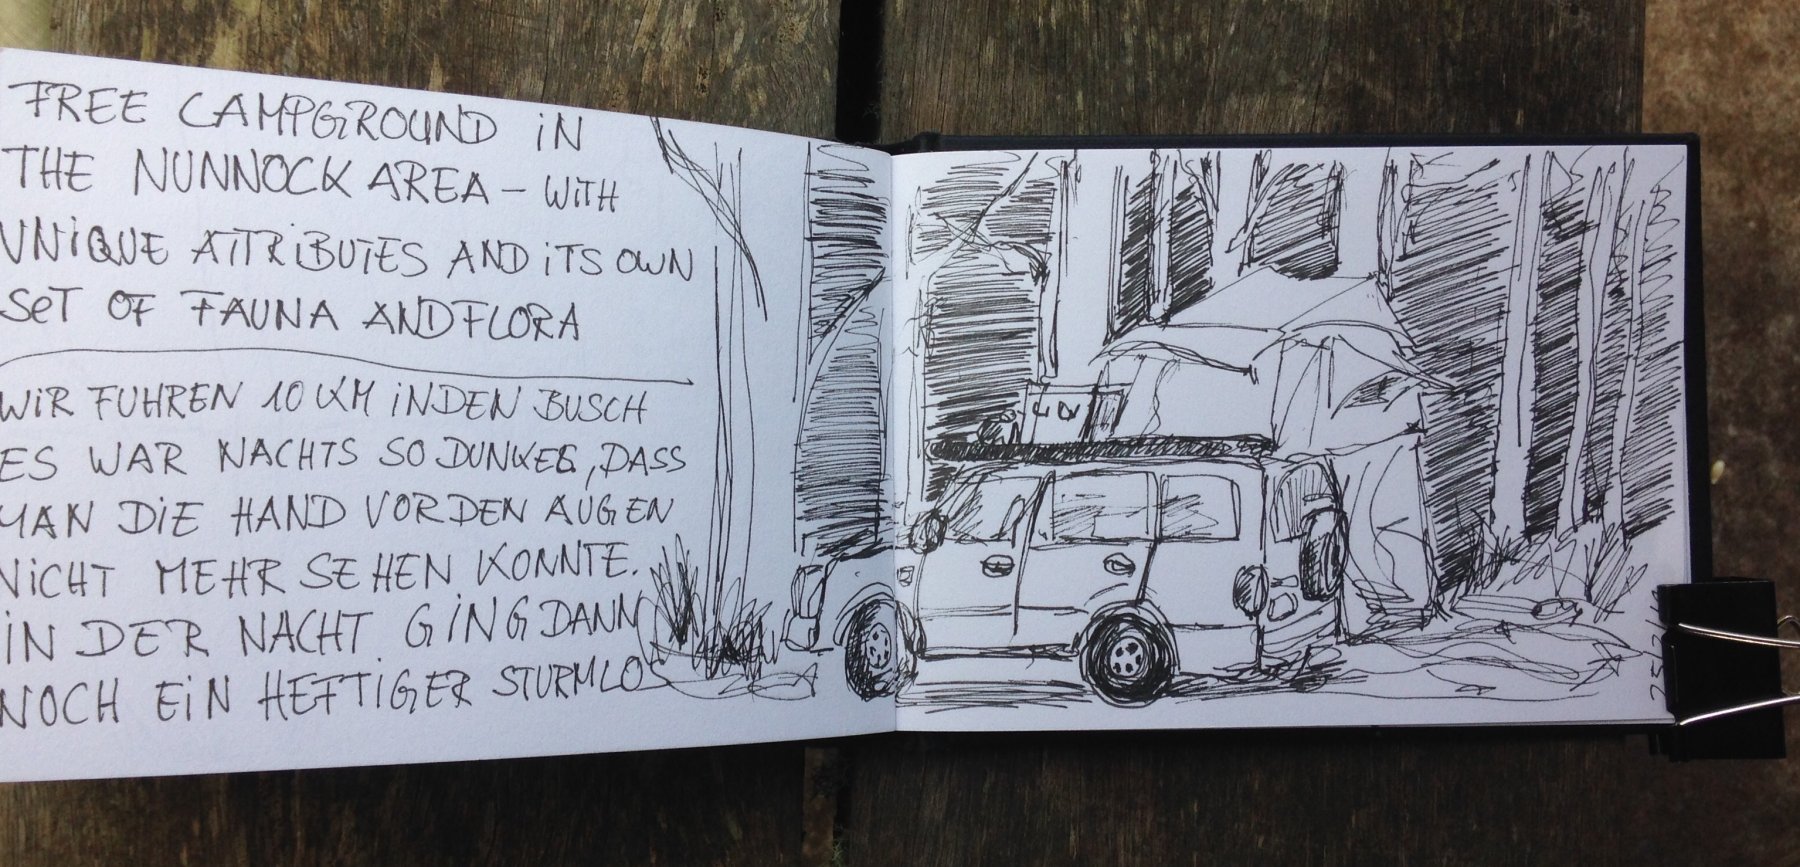 FREE CAMPGROUND IN
THE NUNNOCK AREA – WITH
UNIQUE ATTRIBUTES AND ITS OWN
SET OF FAUNA AND FLORA
WIR FUHREN 10 KM IN DEN BUSCH
ES WAR NACHTS SO DUNKEL, DASS
MAN DIE HAND VOR DEN AUGEN
NICHT MEHR SEHEN KONNTE.
IN DER NACHT GING DANN
NOCH EIN HEFTIGER STURM LOS